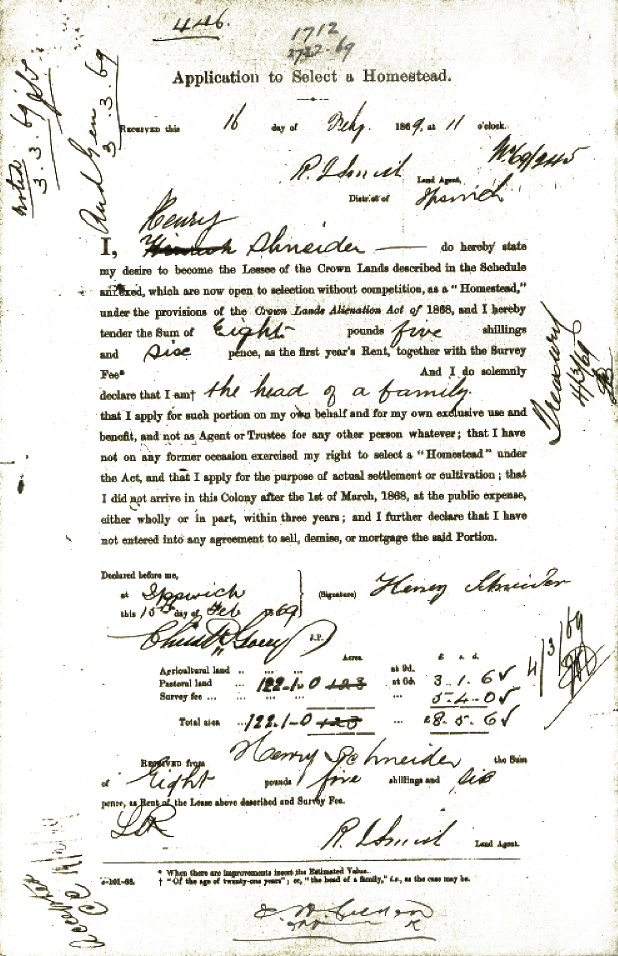 446.
1712
2722-69
noted 3.3.69
And Gen 3.3.69
Application to Select a Homestead.
RECEIVED this 16 day of Feby. 1869, at 11 o'clock.
No 69/245
R J Smith Land Agent,
District of Ipswich
Henry
I, Shneider do hereby state
my desire to become the Lessee of the Crown Lands described in the Schedule
annexed, which are now open to selection without competition, as a "Homestead,"
under the provisions of the Crown Lands Alienation Act of 1868, and I hereby
tender the Sum of Eight pounds five shillings
and six pence, as the first year's Rent, together with the Survey
Fee* And I do solemnly
declare that I am† the head of a family.
that I apply for such portion on my own behalf and for my own exclusive use and
benefit, and not as Agent or Trustee for any other person whatever; that I have
not on any former occasion exercised my right to select a "Homestead" under
the Act, and that I apply for the purpose of actual settlement or cultivation; that
I did not arrive in this Colony after the 1st of March, 1868, at the public expense,
either wholly or in part, within three years; and I further declare that I have
not entered into any agreement to sell, demise, or mortgage the said Portion.
Treasury 4/3/69
Declared before me,
at Ippwich
this 15th day of Feb 1869
(Signature) Henry Shneider
J.P.
Acres. £ s. d.
Agricultural land .. ... ... at 9d.
Pastoral land ... 122.1.0 123 at 6d. 3.1.6
Survey fee ... ... ... ... 5.4.0
Total area ... 122.1.0 123 ... £8.5.6
4/3/69
RECEIVED from Henry Schneider the Sum
of Eight pounds five shillings and six
pence, as Rent of the Lease above described and Survey Fee.
R J Smith Land Agent.
* When there are improvements insert the Estimated Value.
c-101-68. † "Of the age of twenty-one years"; or, "the head of a family," i.e., as the case may be.
Accepted